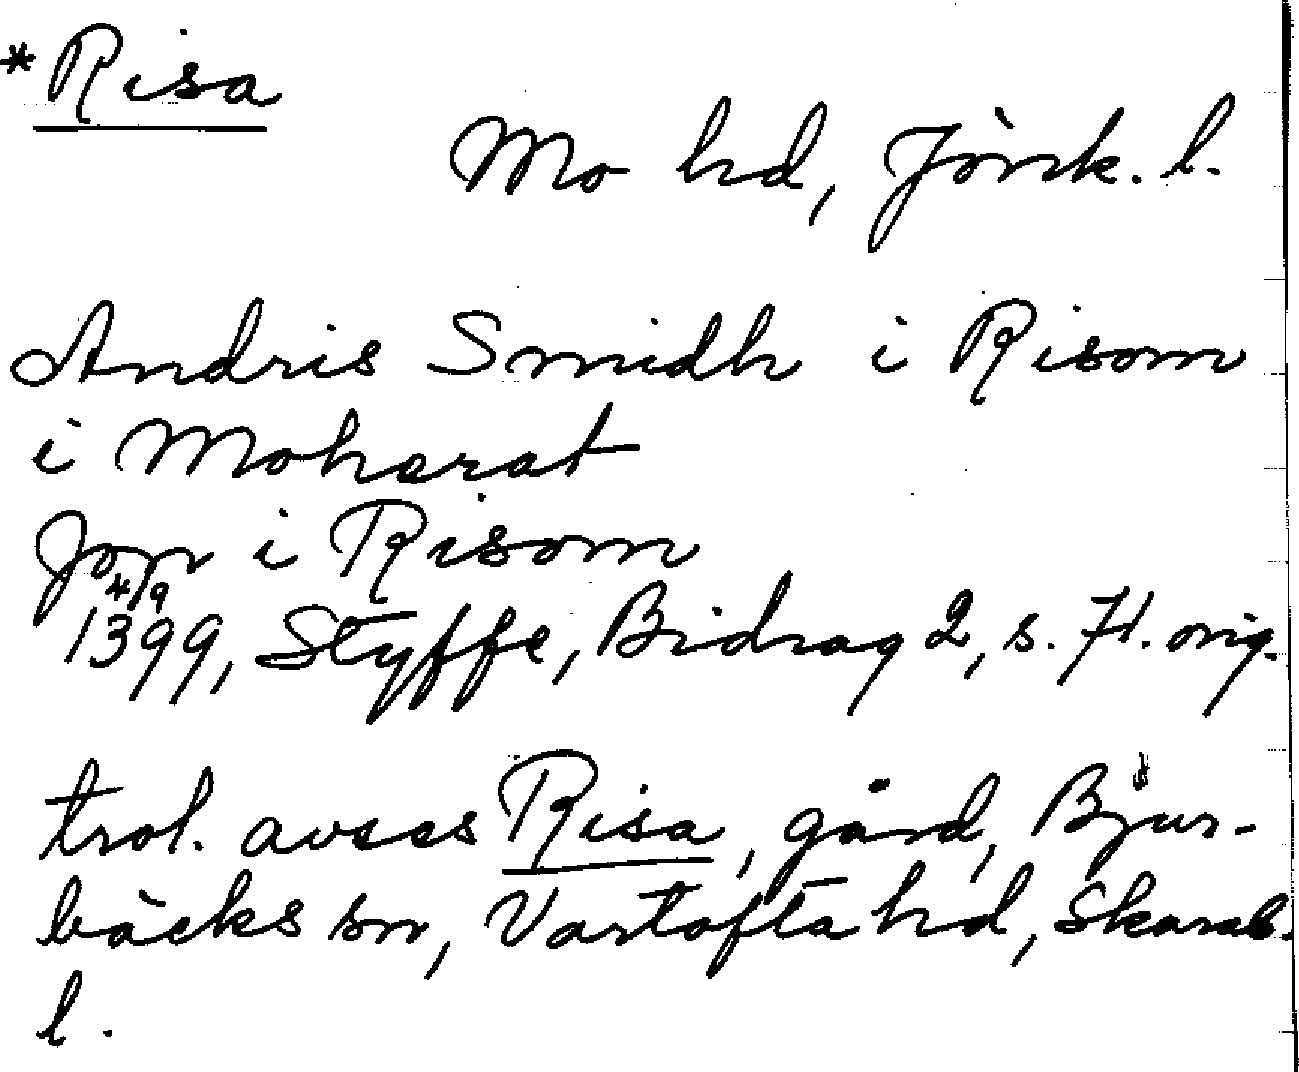 *Risa
Mo hd, Jönk. l.
Andris Smidh i Risom
i Moharat
Jon i Risom
4/9
1399, Styffe, Bidrag 2, s. 71. orig.
trol. avses Risa, gård, Bjur-
bäcks sn, Vartofta hd, Skarab.
l.